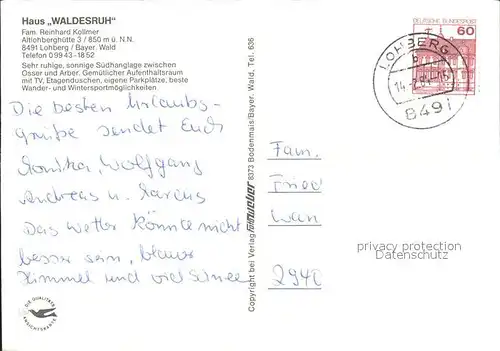 Haus „WALDESRUH"
Fam. Reinhard Kollmer
Altlohberghütte 3 / 850 m ü. N.N.
8491 Lohberg / Bayer. Wald
Telefon 09943-1852
Sehr ruhige, sonnige Südhanglage zwischen
Osser und Arber. Gemütlicher Aufenthaltsraum
mit TV, Etagenduschen, eigene Parkplätze, beste
Wander- und Wintersportmöglichkeiten
Die besten Urlaubs-
grüße sendet Euch
Monika, Wolfgang
Andreas u. Marcus
Das Wetter könnte nicht
besser sein, blauer
Himmel und viel Schnee
DIE QUALITÄTS
ANSICHTSKARTE
Copyright by Verlag 8373 Bodenmais/Bayer. Wald, Tel. 636
DEUTSCHE BUNDESPOST
60
LOHBERG
b
8491
Fam.
Fried
Wan
2940
privacy protection
Datenschutz